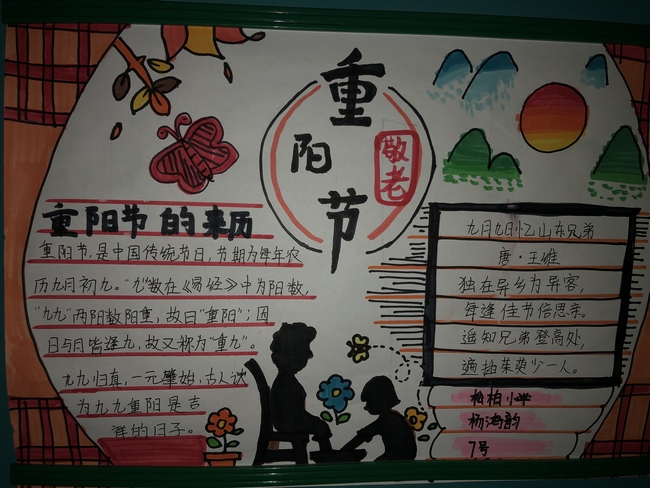 重阳节
敬老
重阳节的来历
重阳节，是中国传统节日，节期为每年农
历九月初九。"九"数在《易经》中为阳数，
"九九"两阳数阳重，故曰"重阳"；因
日与月皆逢九，故又称为"重九"。
九九归真，一元肇始，古人认
为九九重阳是吉
祥的日子。
九月九日忆山东兄弟
唐·王维
独在异乡为异客，
每逢佳节倍思亲。
遥知兄弟登高处，
遍插茱萸少一人。
松柏小学
杨涛韵
7号